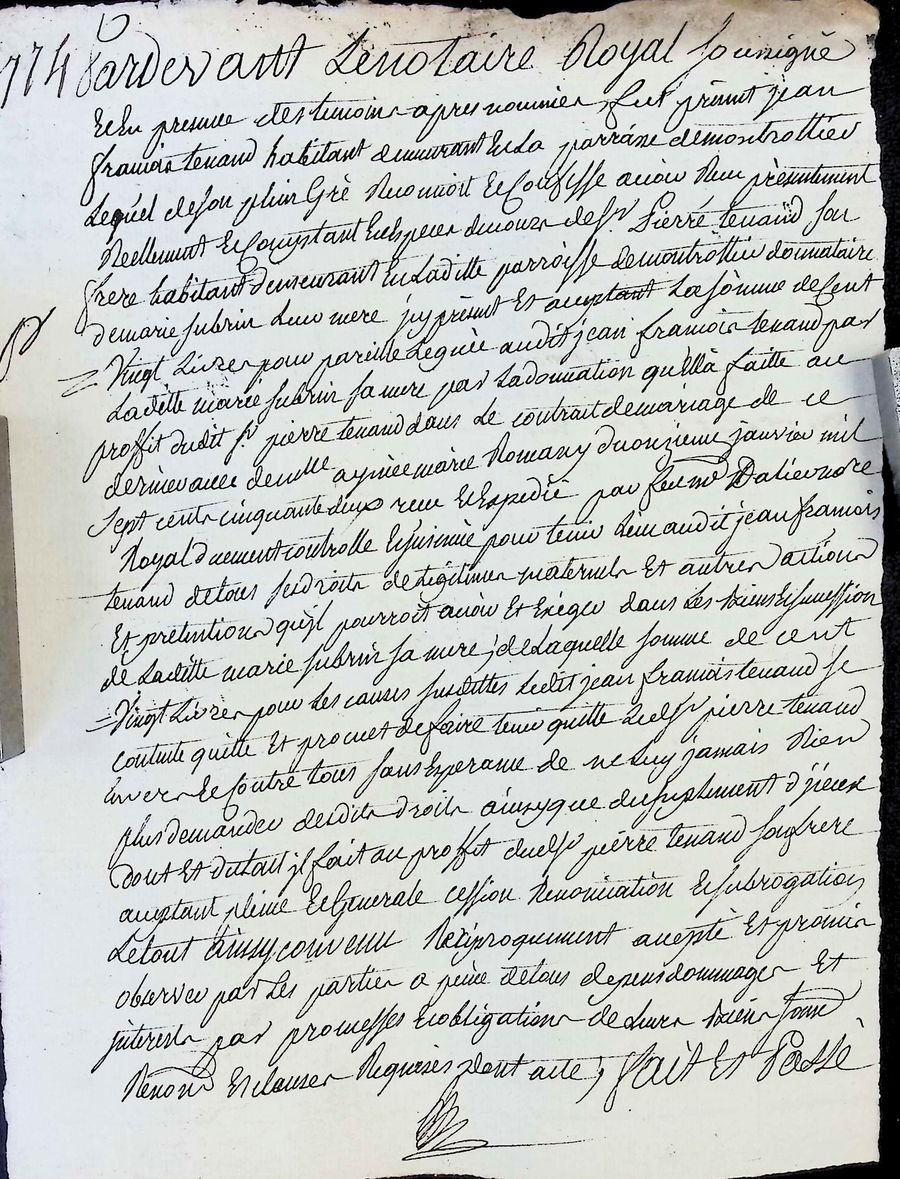 774 Pardevant Lenotaire Royal soussigné
Et En presence des temoins apres nommés, fut présent jean
francois tenand habitant demeurant En La parroisse demontrottier
Lequel deson plein Gré Reconnoit Et Confesse avoir Receu présentement
Reellement Et Comptant En Especes de cours de sr. Pierre tenand son
frere habitant demeurant En Laditte parroisse demontrottier donnataire
demarie subrin Leur mere jcy présent Et aceptant La somme de Cent
Vingt Livres pour pareille Leguée audit jean francois tenand par
Laditte marie subrin sa mere par Ladonnation qu'Ellà faitte au
proffit dudit sr. pierre tenand dans Le contrait demariage de ce
dernier avec demlle aymée marie Romany du onzieme janvier mil
sept cents cinquante deux receu Et Expedié par feu me Dalie nore
Royal duement controllé Et insinüé pour tenir Lieu audit jean francois
tenand detous ses droits de Legitimes maternels Et autres actions
Et pretentions qu'jl pourroit avoir Et Exiger dans Les biens Et succession
de Laditte marie subrin sa mere ; de Laquelle somme de cent
Vingt Livres pour Les causes susdittes Ledit jean francois tenand se
contente quitte Et promet de faire tenir quitte Ledit sr pierre tenand
Envers Et Contre tous sans Esperance de ne Luy jamais Rien
plus demander desdits droits ainsy que du suplement d'jceux
dont Et dutout jl fait au proffit dudit sr pierre tenand son frere
aceptant pleine Et Generale cession Renonciation Et subrogation
Letout ainsy convenu Réciproquement acepté Et promis
observer par Les parties a peine detous depens dommages Et
interests par promesses Et obligations de Leurs biens soumd
Renond Et clauses Requises dont acte, fait Et Passé